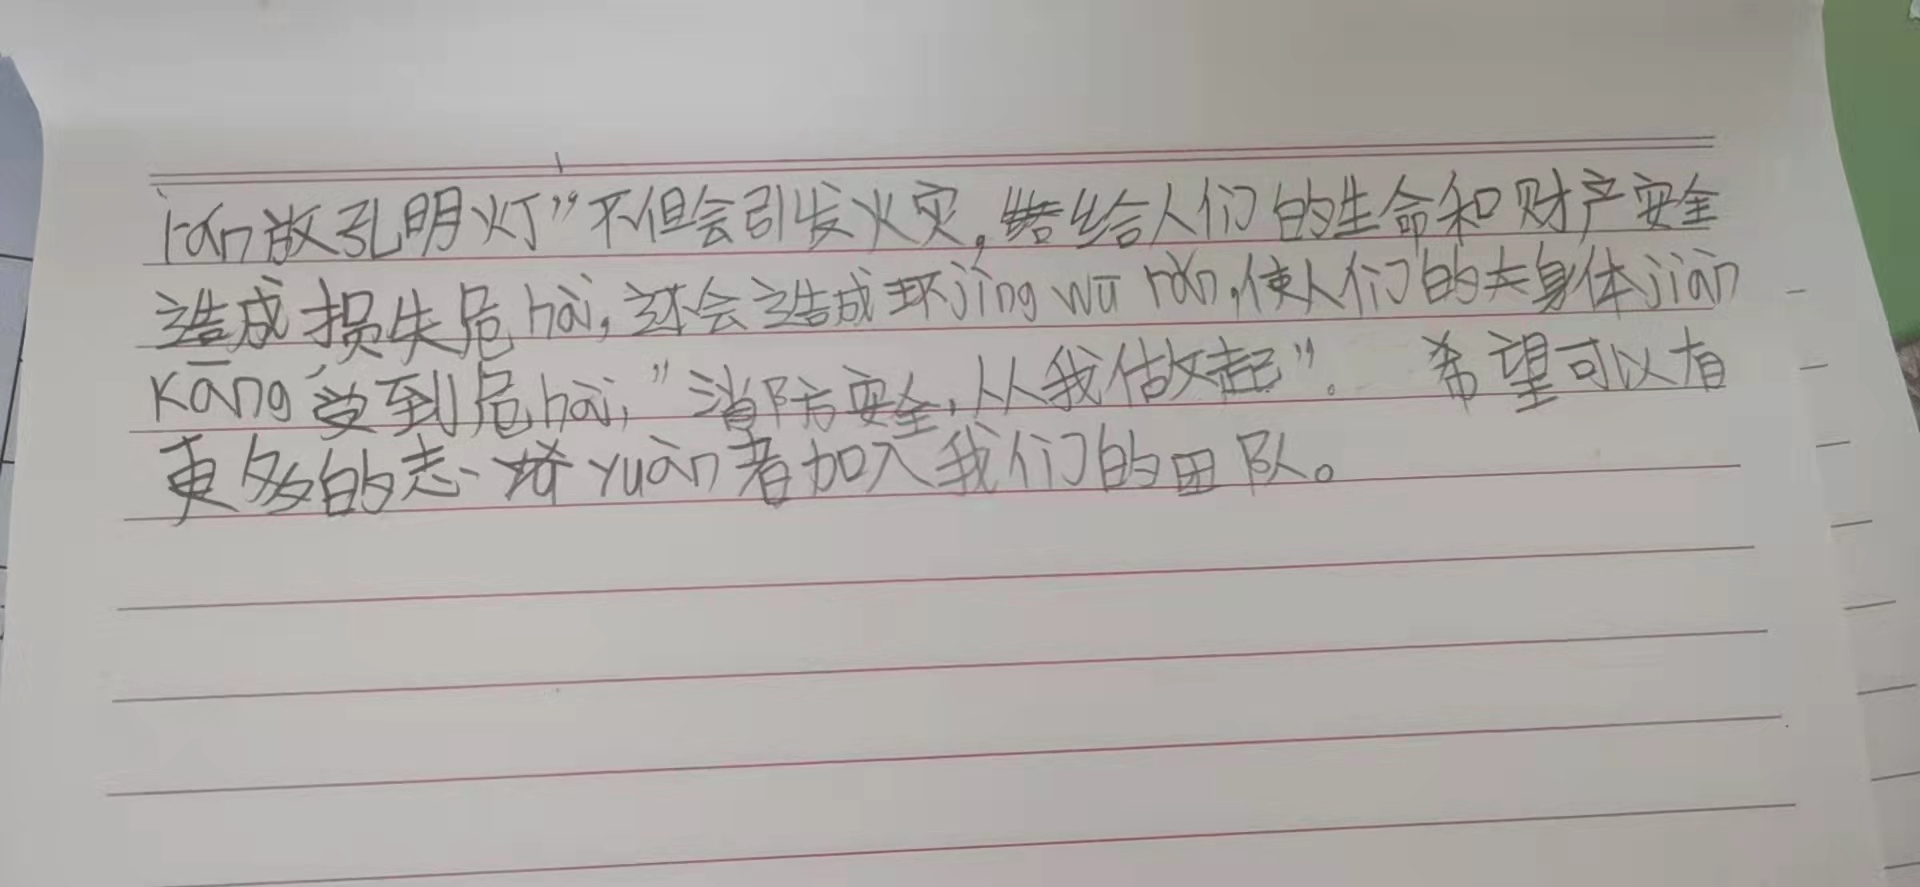 rán放孔明灯”不但会引发火灾，给人们的生命和财产安全
造成损失危hài，还会造成环jìng wū rǎn，使人们的身体jiàn
kāng受到危hài，”消防安全，从我做起”。 希望可以有
更多的志yuàn者加入我们的团队。